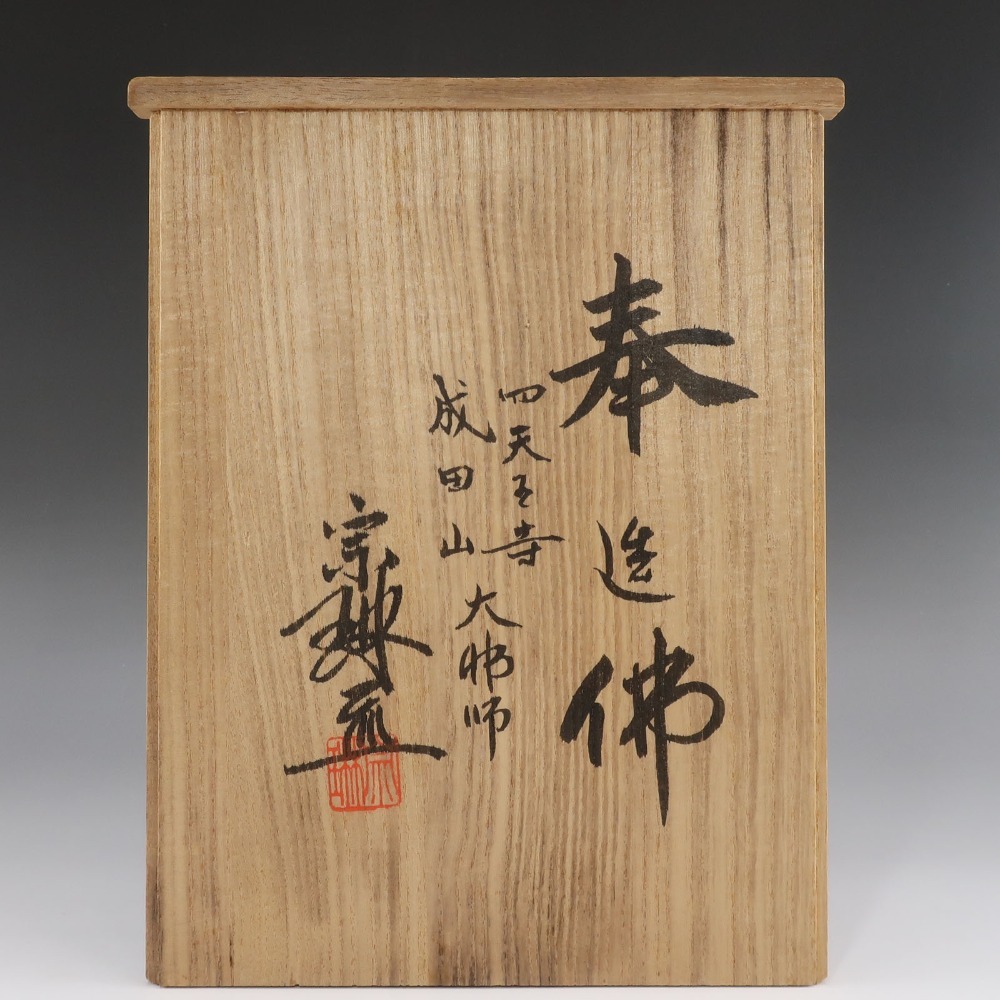 奉造佛
四天王寺
成田山
大佛師
宗琳